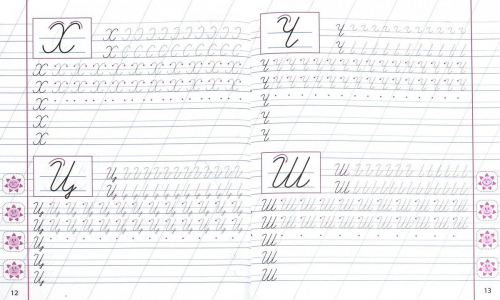 Х
Х
Х
Х Х Х Х Х Х Х Х Х Х Х Х
Х Х Х Х Х Х Х Х Х Х Х Х
Х
Х
Х
Ц
Ц
Ц
Ц Ц Ц Ц Ц Ц Ц Ц Ц Ц Ц Ц
Ц Ц Ц Ц Ц Ц Ц Ц Ц Ц Ц Ц
Ц
Ц
Ц
12
Ч
Ч
Ч
Ч Ч Ч Ч Ч Ч Ч Ч Ч Ч Ч Ч Ч Ч Ч Ч
Ч Ч Ч Ч Ч Ч Ч Ч Ч Ч Ч Ч Ч Ч Ч Ч
Ч
Ч
Ч
Ш
Ш
Ш
Ш Ш Ш Ш Ш Ш Ш Ш Ш Ш Ш
Ш Ш Ш Ш Ш Ш Ш Ш Ш Ш Ш
Ш
Ш
Ш
13